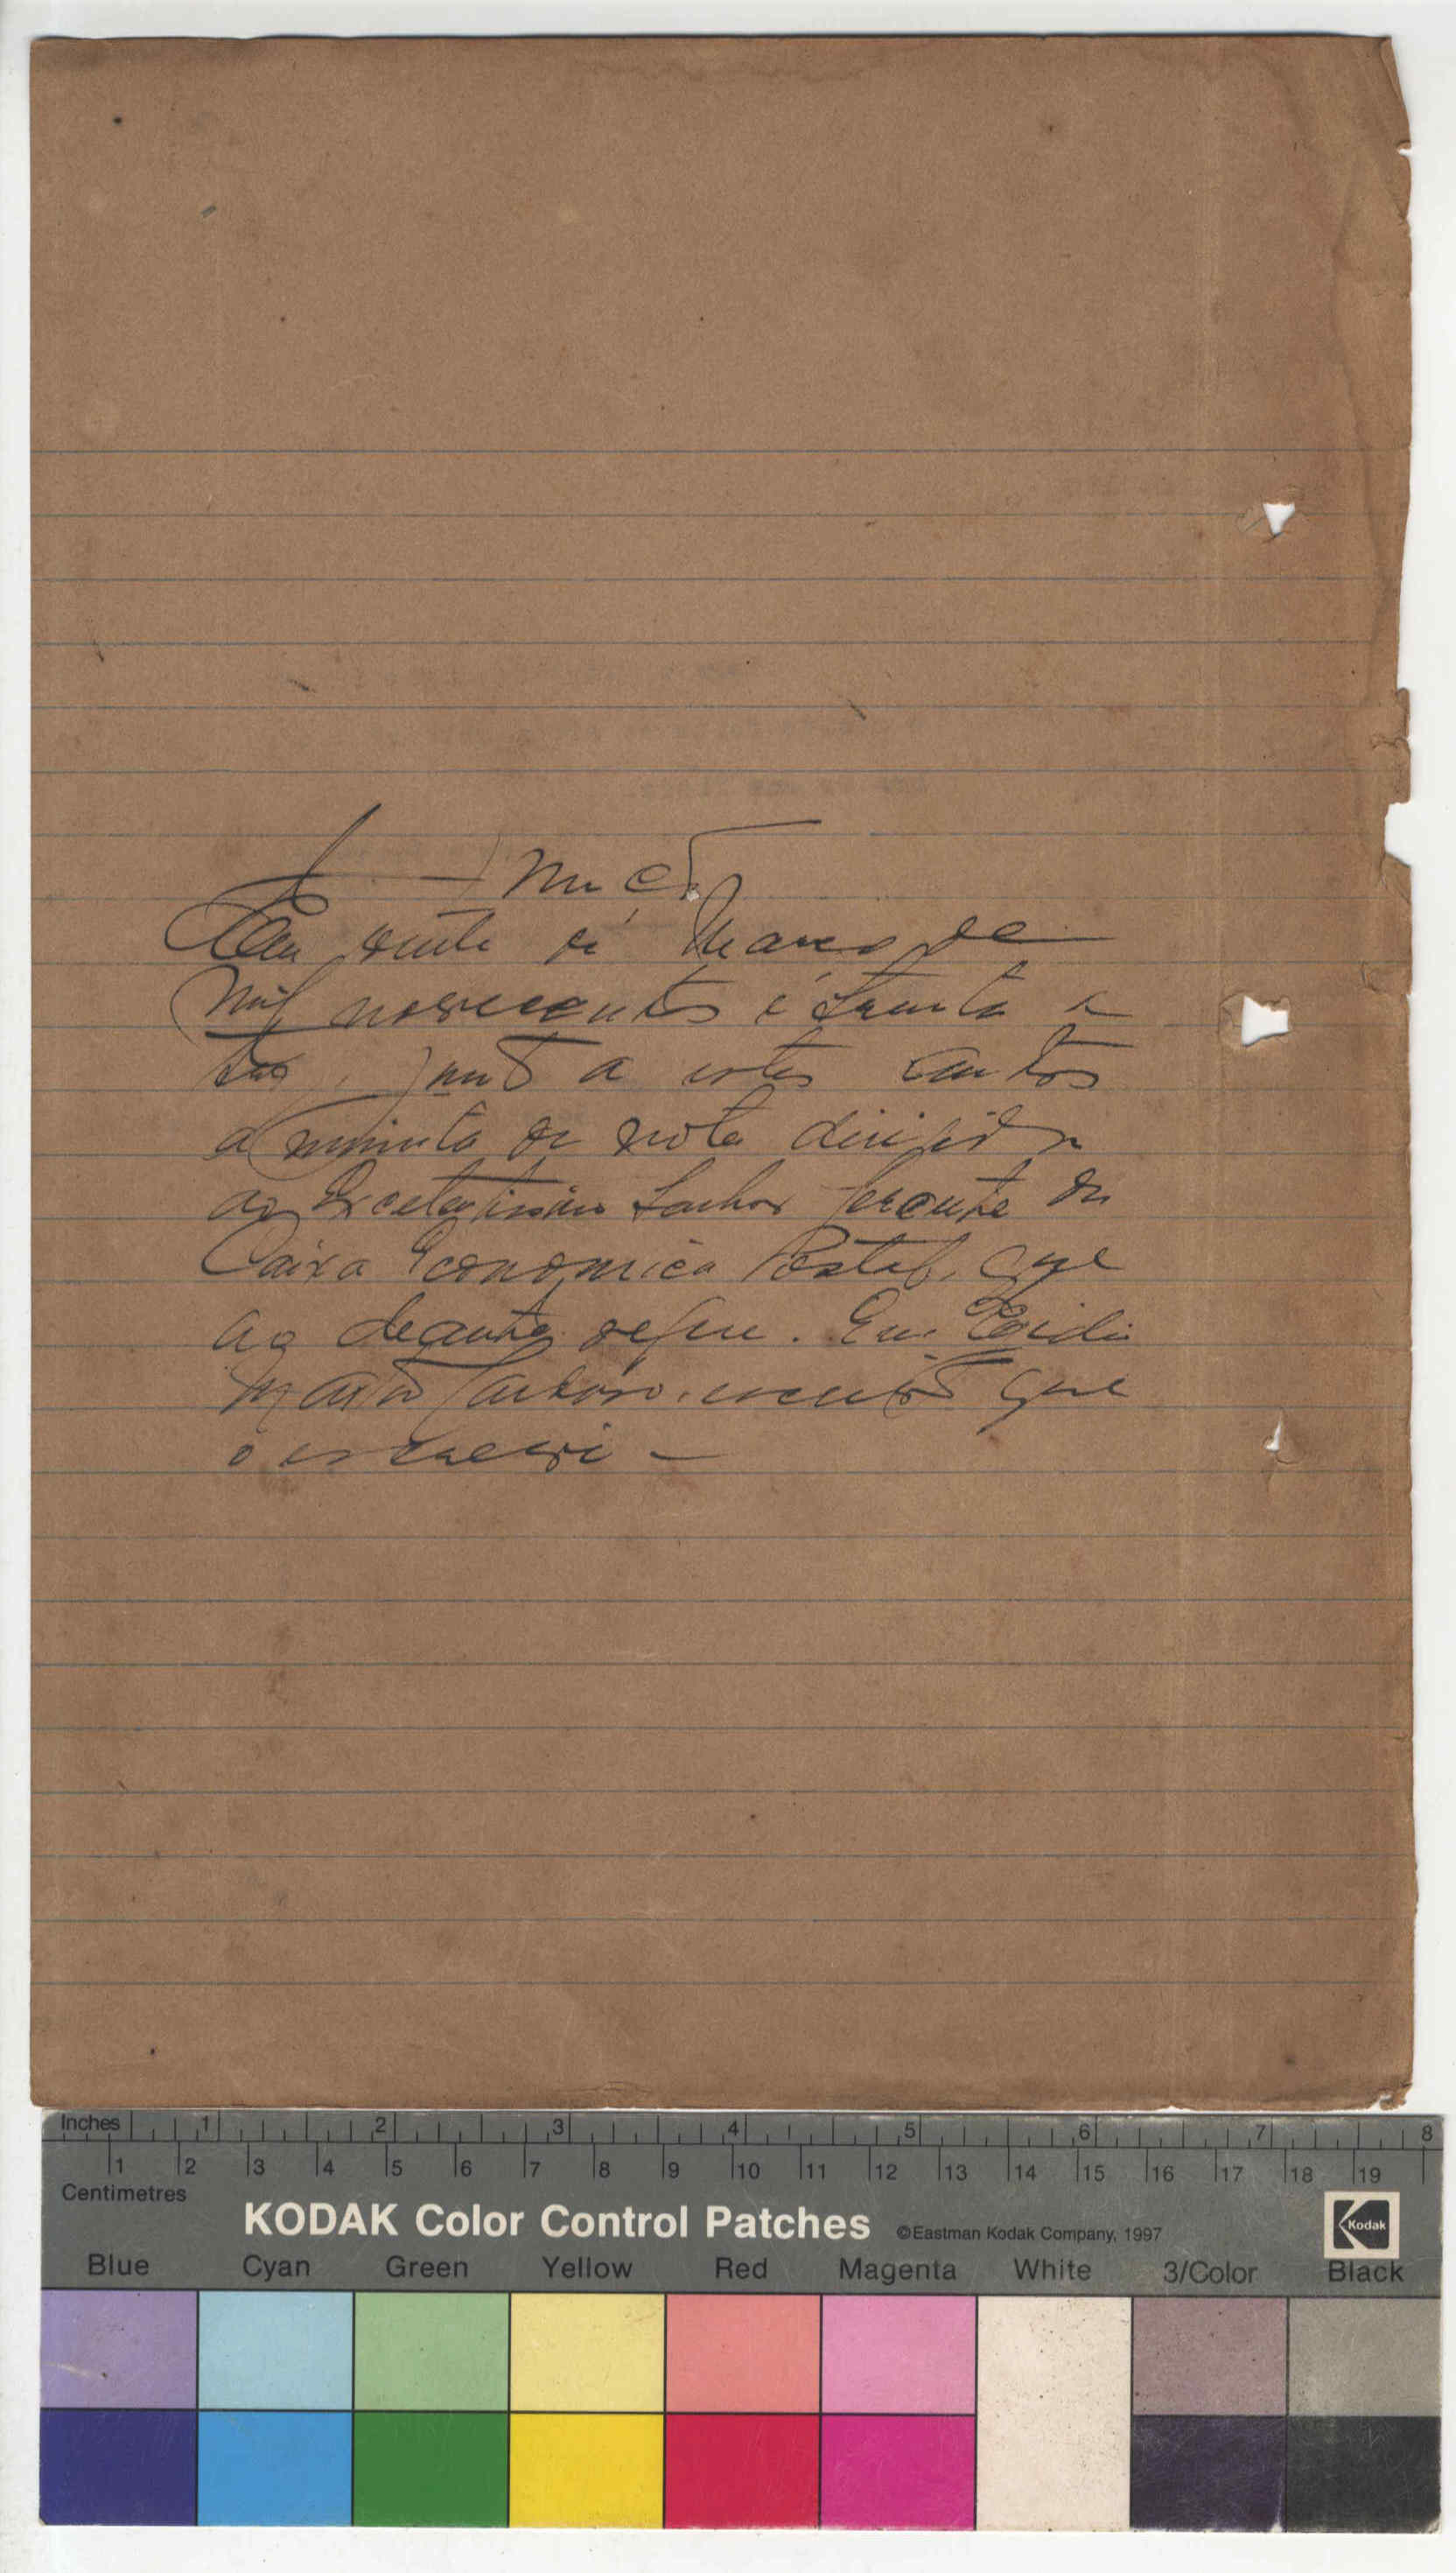 Juntada
Em vinte de Março de
mil novecentos e trinta e
tres, junto a estes autos
a minuta de nota dirigida
ao Excelentissimo Senhor Gerente da
Caixa Economica Postal, que
ao deante segue. Eu,
escrivão que
o escrevi -
Inches 1 2 3 4 5 6 7 8
1 2 3 4 5 6 7 8 9 10 11 12 13 14 15 16 17 18 19
Centimetres
KODAK Color Control Patches ©Eastman Kodak Company, 1997 Kodak
Blue Cyan Green Yellow Red Magenta White 3/Color Black